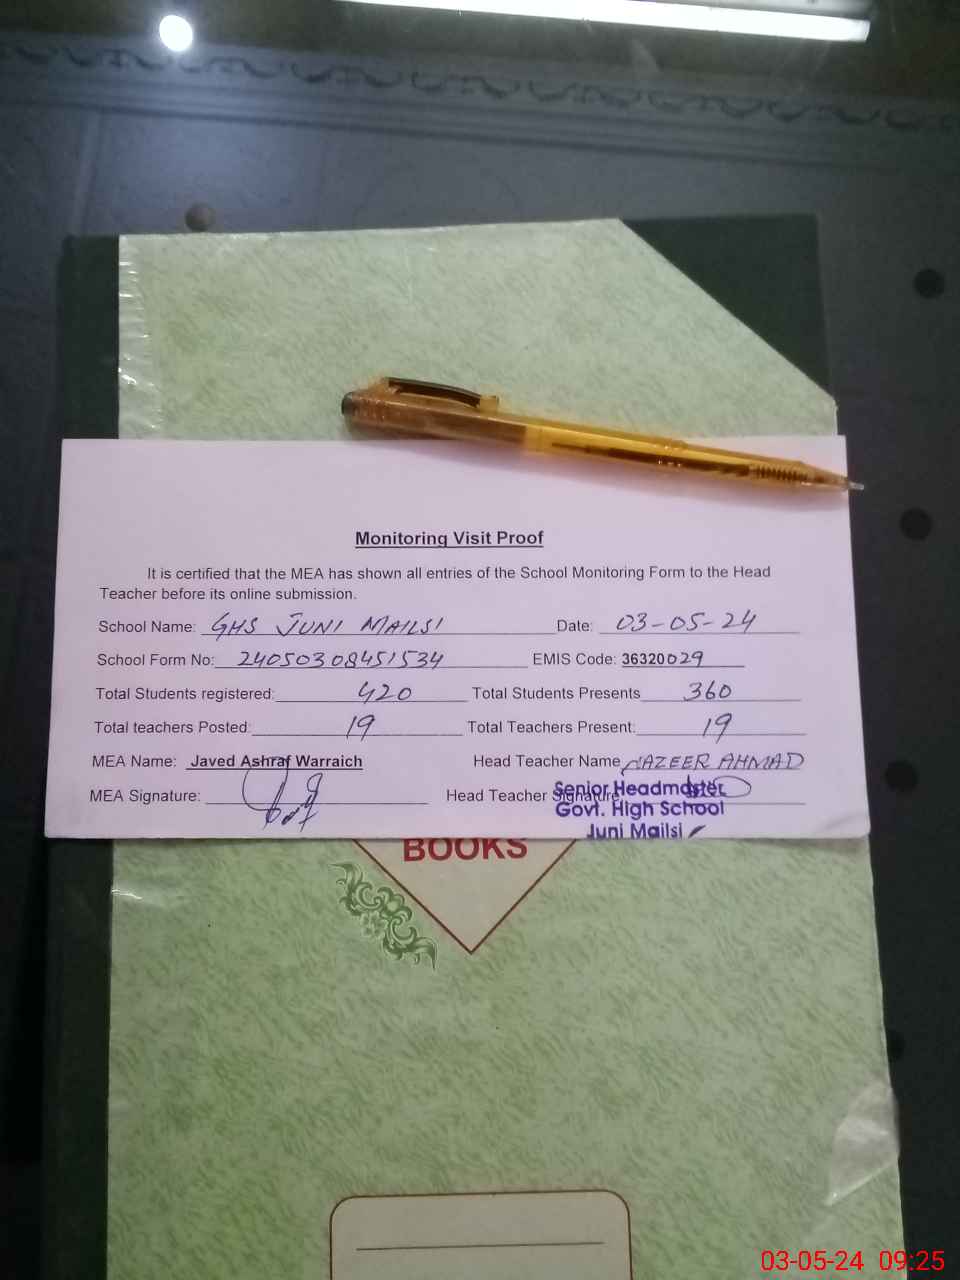 Monitoring Visit Proof
It is certified that the MEA has shown all entries of the School Monitoring Form to the Head
Teacher before its online submission.
School Name: GHS JUNI MAILSI Date: 03-05-24
School Form No: 24050308451534 EMIS Code: 36320029
Total Students registered: 420 Total Students Presents 360
Total teachers Posted: 19 Total Teachers Present: 19
MEA Name: Javed Ashraf Warraich Head Teacher Name NAZEER AHMAD
MEA Signature: Head Teacher Signature
Senior Headmaster
Govt. High School
Juni Mailsi
BOOKS
03-05-24 09:25